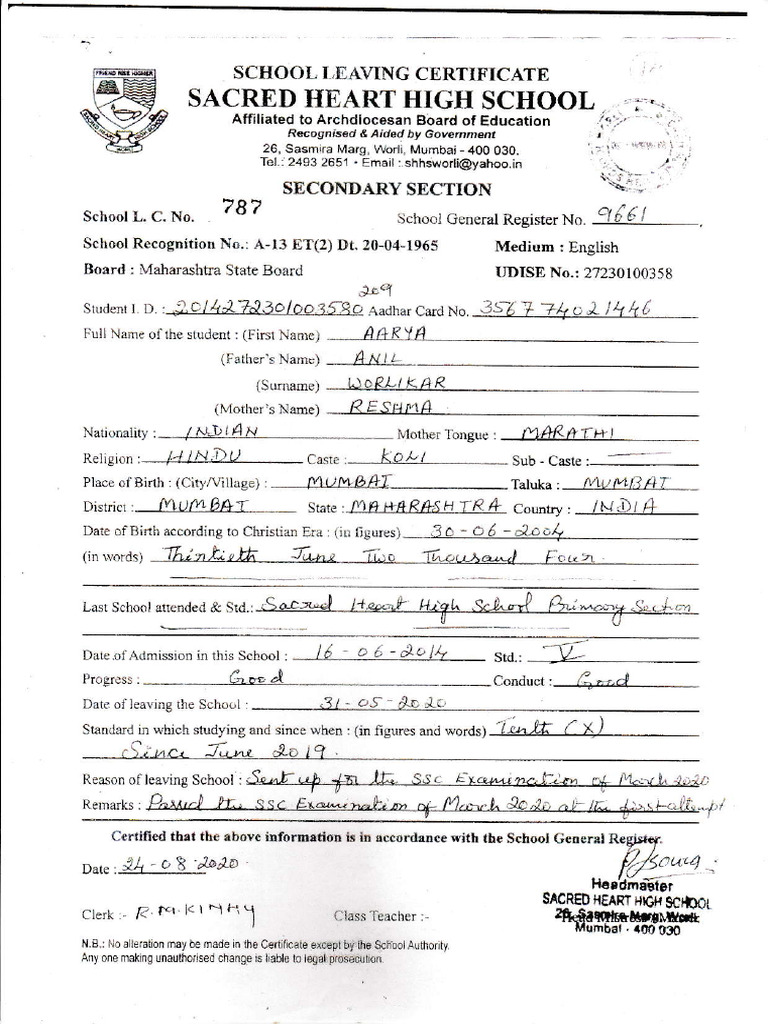 FRIEND RISE HIGHER
SACRED HEART HIGH SCHOOL
WORLI
SCHOOL LEAVING CERTIFICATE
SACRED HEART HIGH SCHOOL
Affiliated to Archdiocesan Board of Education
Recognised & Aided by Government
26, Sasmira Marg, Worli, Mumbai - 400 030.
Tel.: 2493 2651 • Email : shhsworli@yahoo.in
SECONDARY SECTION
School L. C. No. 787 School General Register No. 9661
School Recognition No.: A-13 ET(2) Dt. 20-04-1965 Medium : English
Board : Maharashtra State Board UDISE No.: 27230100358
209
Student I. D. : 2014272301003580 Aadhar Card No. 356774021446
Full Name of the student : (First Name) AARYA
(Father's Name) ANIL
(Surname) WORLIKAR
(Mother's Name) RESHMA
Nationality : INDIAN Mother Tongue : MARATHI
Religion : HINDU Caste : KOLI Sub - Caste :
Place of Birth : (City/Village) : MUMBAI Taluka : MUMBAI
District : MUMBAI State : MAHARASHTRA Country : INDIA
Date of Birth according to Christian Era : (in figures) 30-06-2004
(in words) Thirtieth June Two Thousand Four.
Last School attended & Std.: Sacred Heart High School Primary Section
Date of Admission in this School : 16-06-2014 Std.: V
Progress : Good Conduct : Good
Date of leaving the School : 31-05-2020
Standard in which studying and since when : (in figures and words) Tenth (X)
Since June 2019.
Reason of leaving School : Sent up for the SSC Examination of March 2020
Remarks : Passed the SSC Examination of March 2020 at the first attempt
Certified that the above information is in accordance with the School General Register.
Date : 24-08-2020
Headmaster
SACRED HEART HIGH SCHOOL
26, Sasmira Marg, Worli
Mumbai - 400 030
Clerk :- R.M.KINHY Class Teacher :-
N.B.: No alteration may be made in the Certificate except by the School Authority.
Any one making unauthorised change is liable to legal prosecution.